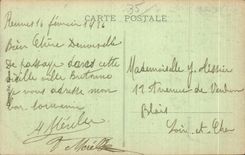 35
CARTE POSTALE
Rennes 10 février
Bien Chère Demoiselle
De passage dans cette
vieille ville Bretonne
je vous adresse mon
bon souvenir
Mademoiselle Y.
12 Avenue de Verdun
Blois
Loir et Cher